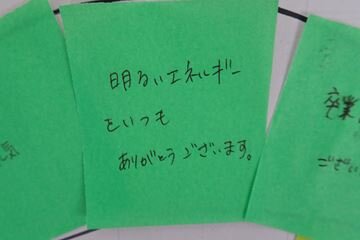 明るいエネルギー
をいつも
ありがとうございます。
気
卒業
ござい